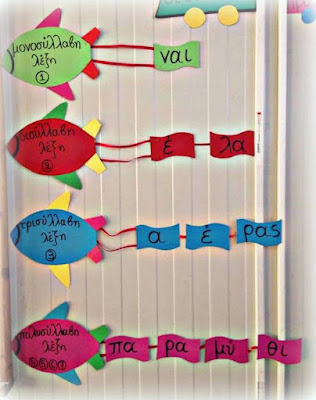 μονοσύλλαβη
λέξη
1
ναι
δισύλλαβη
λέξη
2
έ λα
τρισύλλαβη
λέξη
3
α έ ρας
πολυσύλλαβη
λέξη
πα ρα μύ θι